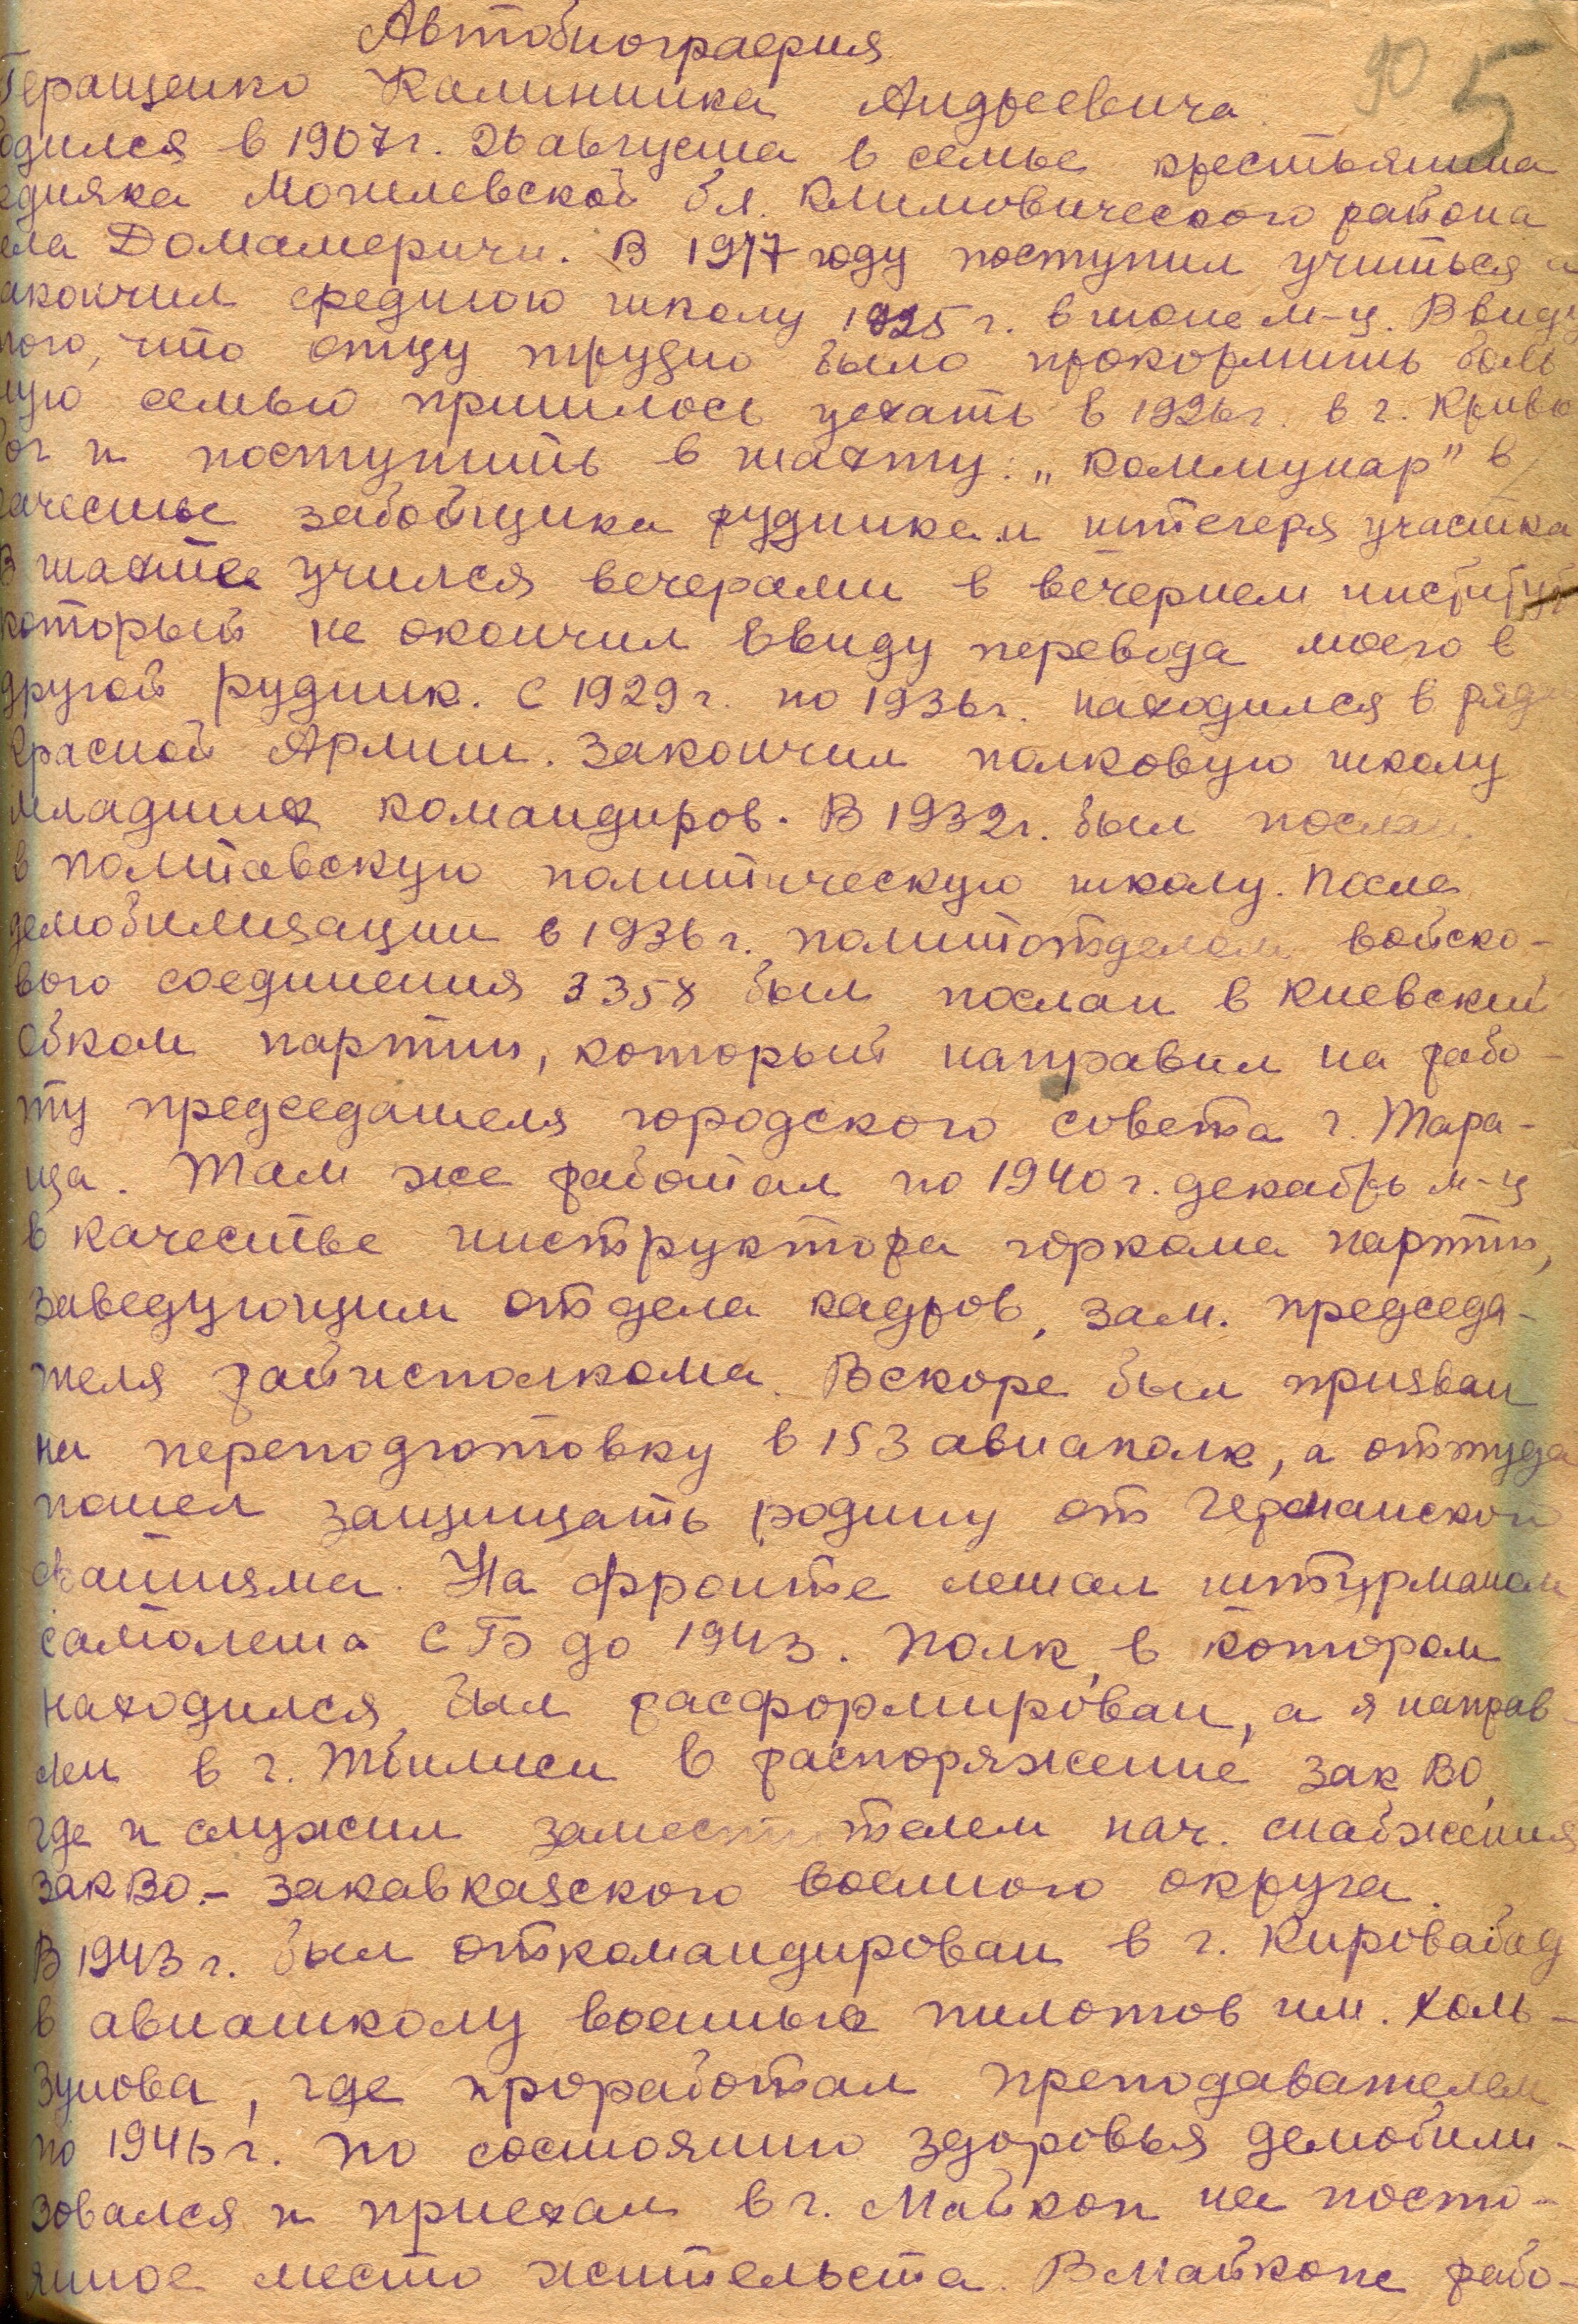 Автобиография
90 5
Геращенко Калинника Андреевича.
одился в 1907 г. 26 августа в семье крестьянина
едняка Могилевской обл. Климовического района
ела Домамеричи. В 1917 году поступил учиться и
акончил среднюю школу 1925 г. в июне м-ц. Ввиду
того, что отцу трудно было прокормить боль
шую семью пришлось уехать в 1926 г. в г. Криво
ог и поступить в шахту: „Коммунар" в
качестве забойщика рудника и штегеря участка
В шахте учился вечерами в вечернем институт
который не окончил ввиду перевода моего в
другой рудник. С 1929 г. по 1936 г. находился в ряд
Красной Армии. Закончил полковую школу
младших командиров. В 1932 г. был послан
в полтавскую политическую школу. После
демобилизации в 1936 г. политотделом войско-
вого соединения 3358 был послан в Киевский
обком партии, который направил на рабо-
ту председателя городского совета г. Тара-
ща. Там же работал по 1940 г. декабрь м-ц
в качестве инструктора горкома партии,
заведующим отдела кадров, зам. председа-
теля райисполкома. Вскоре был призван
на переподготовку в 153 авиаполк, а оттуда
пошел защищать родину от Германского
фашизма. На фронте летал штурманом
самолета СБ до 1943. Полк, в котором
находился, был расформирован, а я направ-
лен в г. Тбилиси в распоряжение Зак ВО,
где и служил заместителем нач. снабжения
Зак ВО.- Закавказского военного округа.
В 1943 г. был откомандирован в г. Кировабад
в авиашколу военных пилотов им. Холь-
зунова, где проработал преподавателем
по 1946 г. По состоянию здоровья демобили-
зовался и приехал в г. Майкоп на посто-
янное место жительства. В Майкопе рабо-